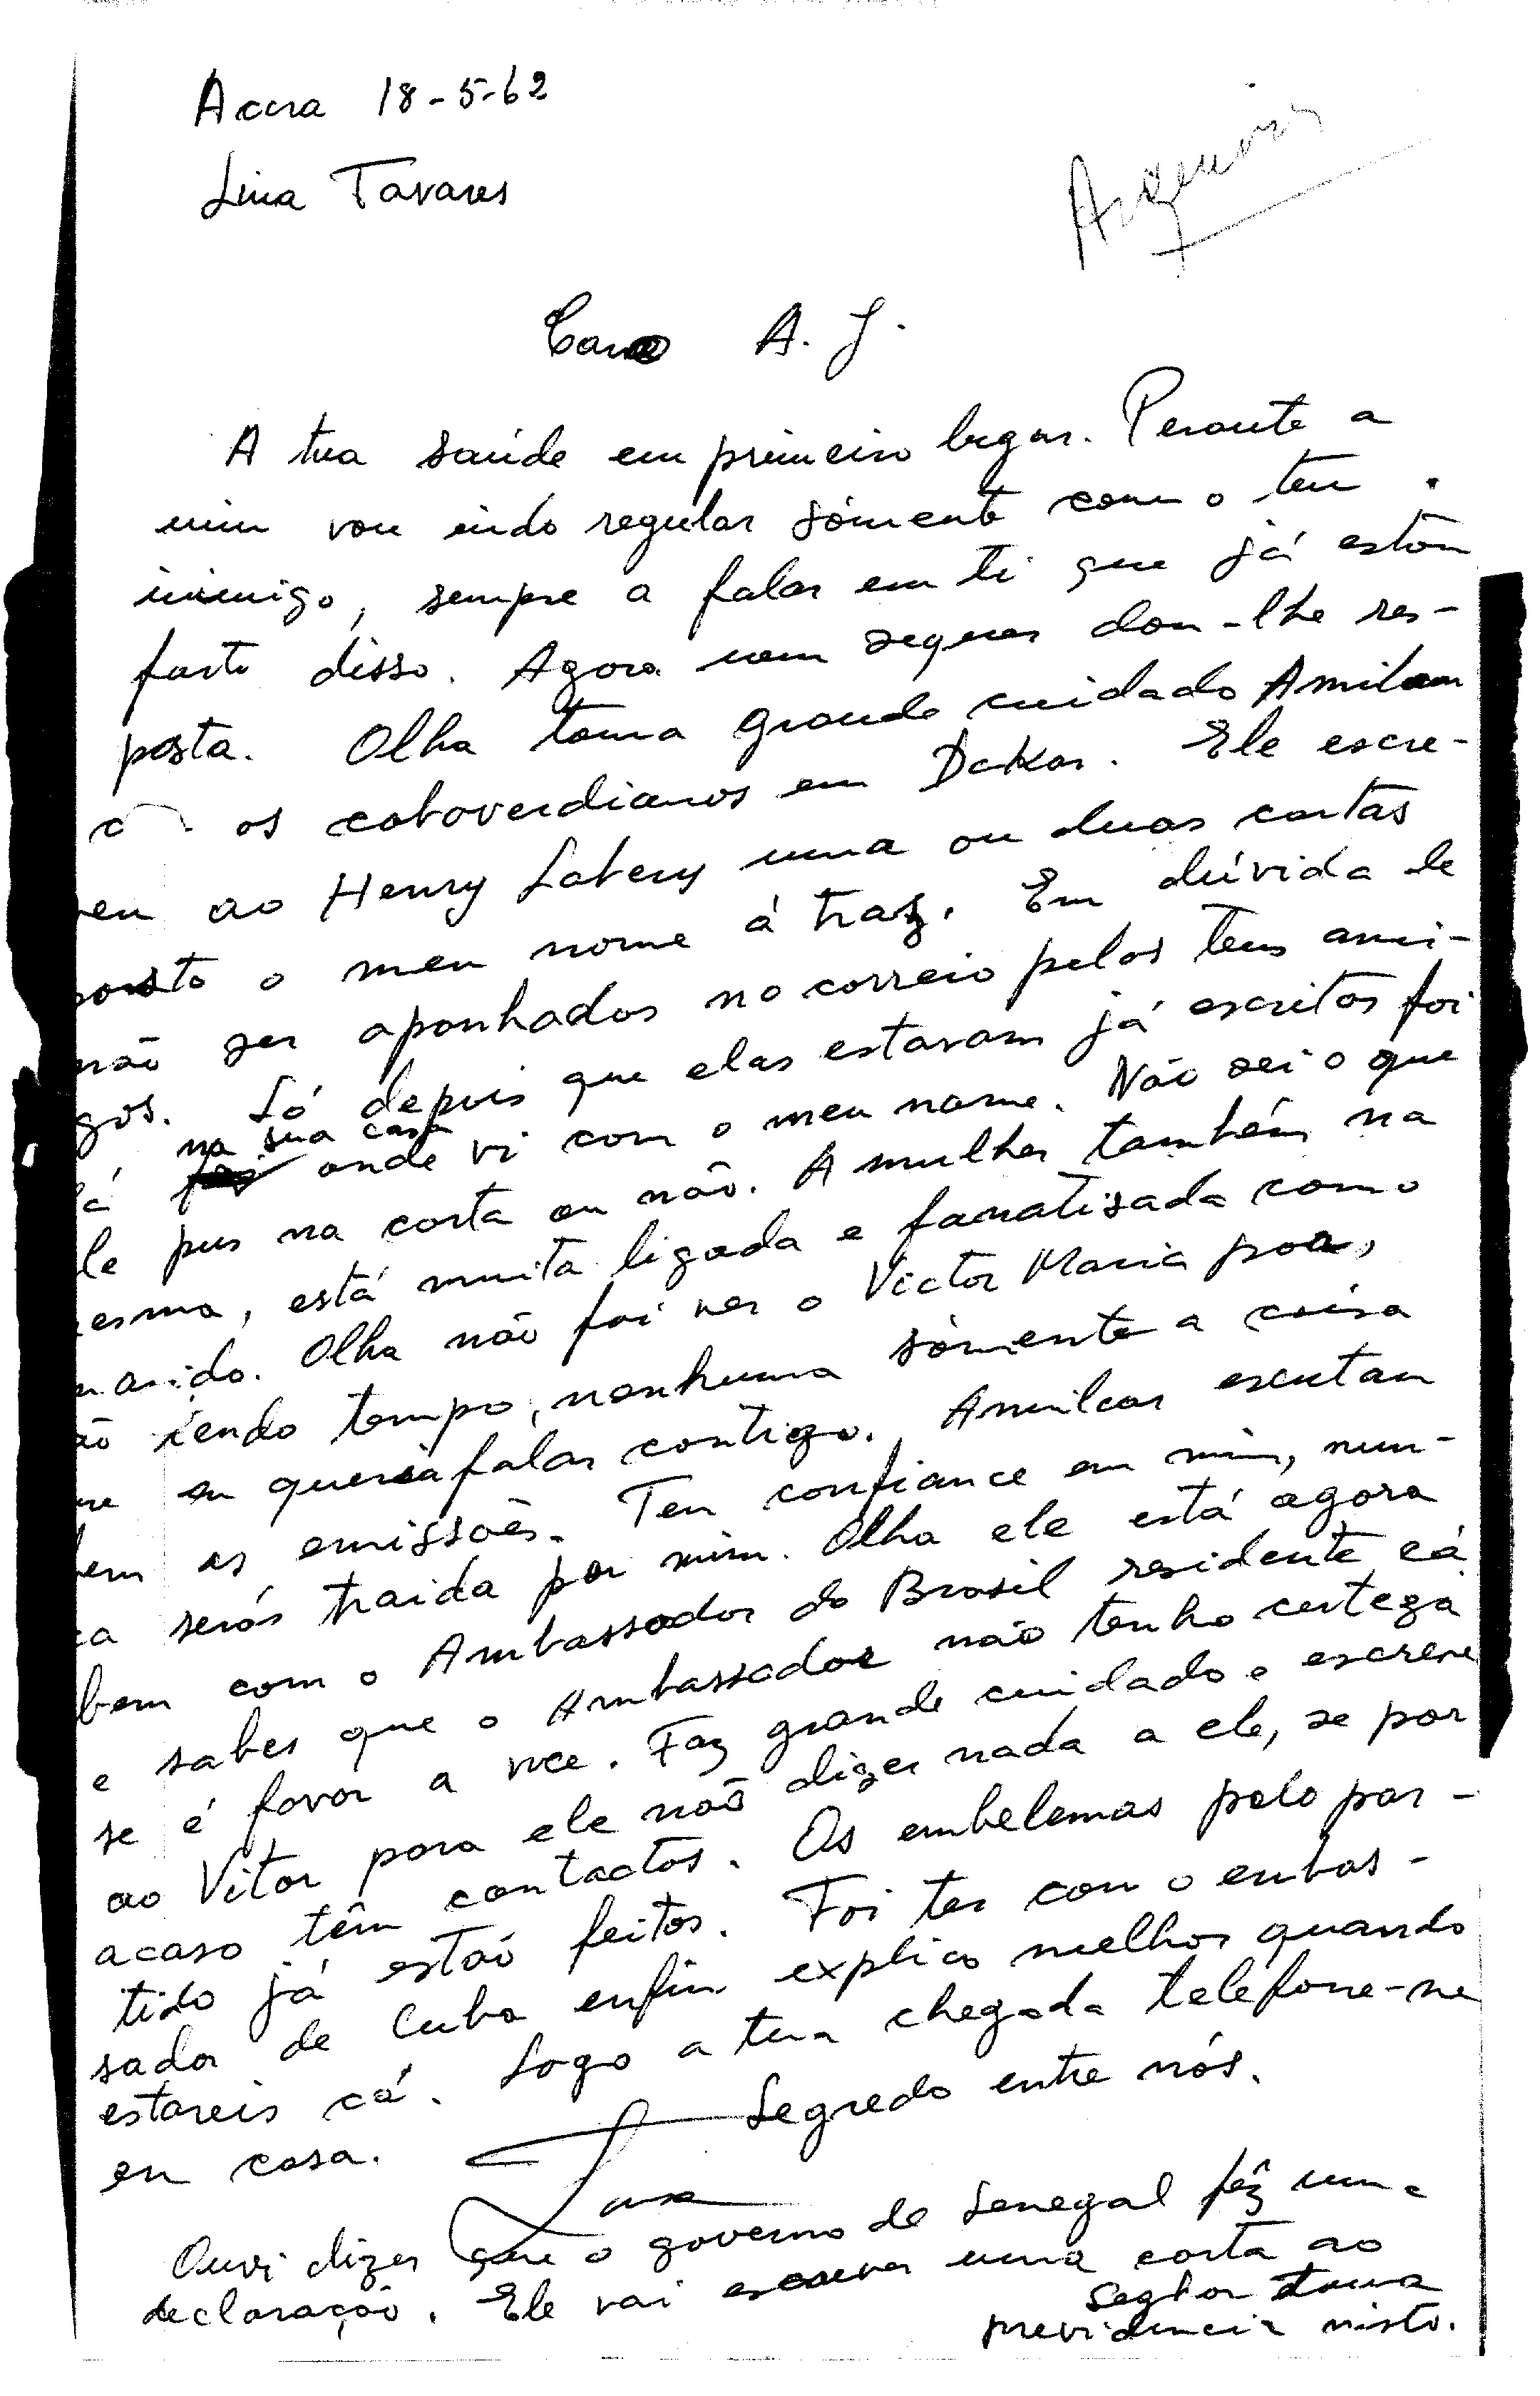 Accra 18-5-62
Lina Tavares
Caro A. J.
A tua saúde em primeiro lugar. Perante a
mim vou indo regular sómente com o teu
inimigo, sempre a falar em ti que já estou
farto disso. Agora nem sequer dou-lhe res-
posta. Olha toma grande cuidado Amilcar
os caboverdianos em Dakar. Ele escre-
veu ao Henry Labery uma ou duas cartas
posto o meu nome á traz. Em dúvida de
não ser apanhados no correio pelos teus ami-
gos. Só depois que elas estavam já escritas foi
na sua casa
lá onde vi com o meu nome. Não sei o que
le pus na carta ou não. A mulher também na
esma, está muita ligada e fanatisada como
marido. Olha não foi ver o Victor Maria por,
ão tendo tempo, nenhuma sómente a coisa
ue eu queria falar contigo. Amilcar escutam
bem as emissões. Ten confiance em mim, nun-
ca serás traida por mim. Olha ele está agora
bem com o Ambassador do Brasil residente cá
e sabes que o Ambassador não tenho certeza
se é favor a vce. Faz grande cuidado e escreve
ao Vitor para ele não dizer nada a ele, se por
acaso têm contactos. Os embelemas pelo par-
tido já estão feitos. Foi ter com o embas-
sador de Cuba enfim explico melhor quando
estareis cá. Logo a tua chegada telefone-me
en casa. Segredo entre nós.
Ouvi dizer que o governo de Senegal fêz uma
declaração. Ele vai escrever uma carta ao
toma
previdencia nisto.